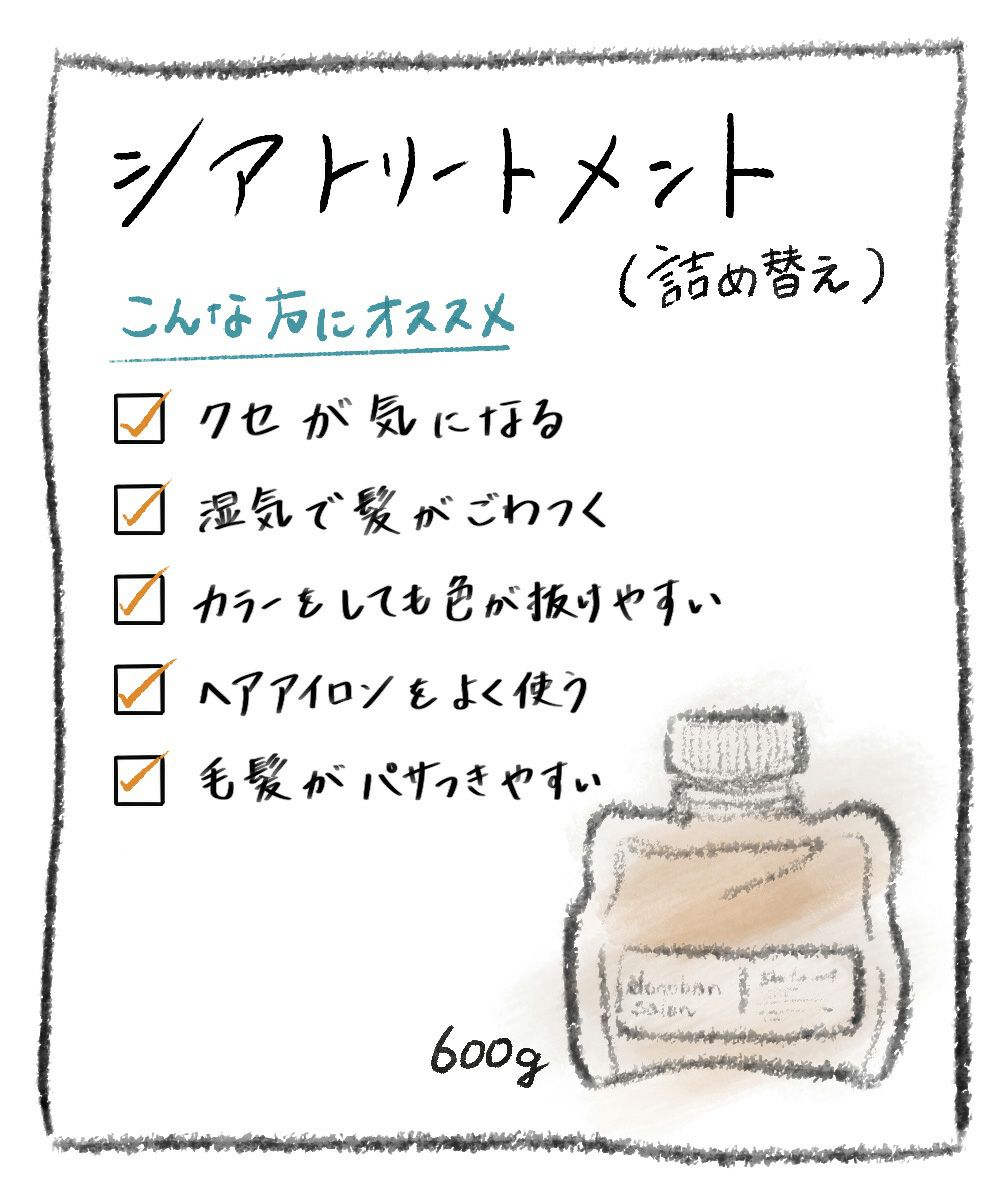 シアトリートメント
(詰め替え)
こんな方にオススメ
クセが気になる
湿気で髪がごわつく
カラーをしても色が抜けやすい
ヘアアイロンをよく使う
毛髪がパサつきやすい
600g